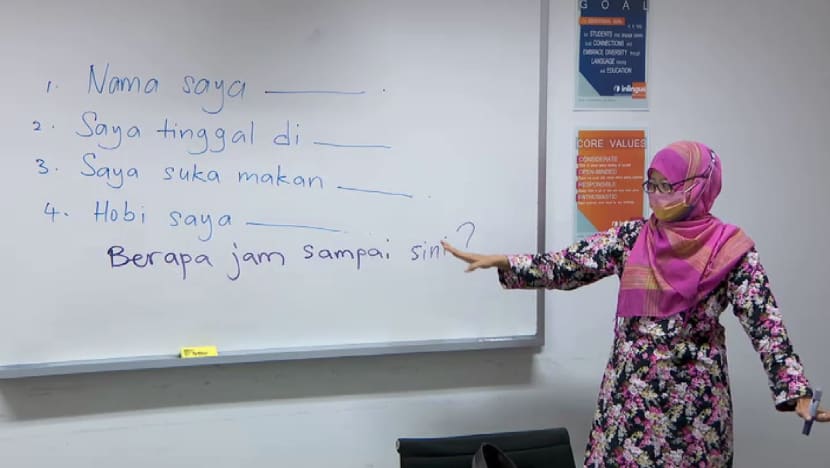 1. Nama saya ______.
2. Saya tinggal di ______
3. Saya suka makan ______.
4. Hobi saya ______.
Berapa jam sampai sini?
GOAL
STUDENTS
CONNECTIONS and
EMBRACE DIVERSITY through
LANGUAGE
and EDUCATION
inlingua
CORE VALUES
CONSIDERATE
OPEN-MINDED
RESPONSIBLE
ENTHUSIASTIC